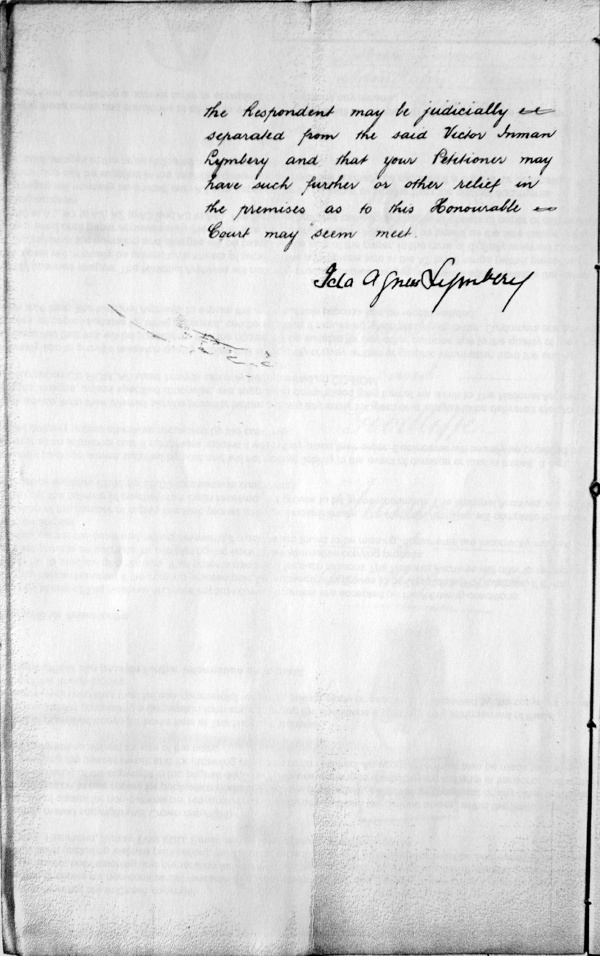 the Respondent may be judicially
separated from the said Victor Inman
Lymbery and that your Petitioner may
have such further or other relief in
the premises as to this Honourable
Court may seem meet.
Ida Agnes Lymbery